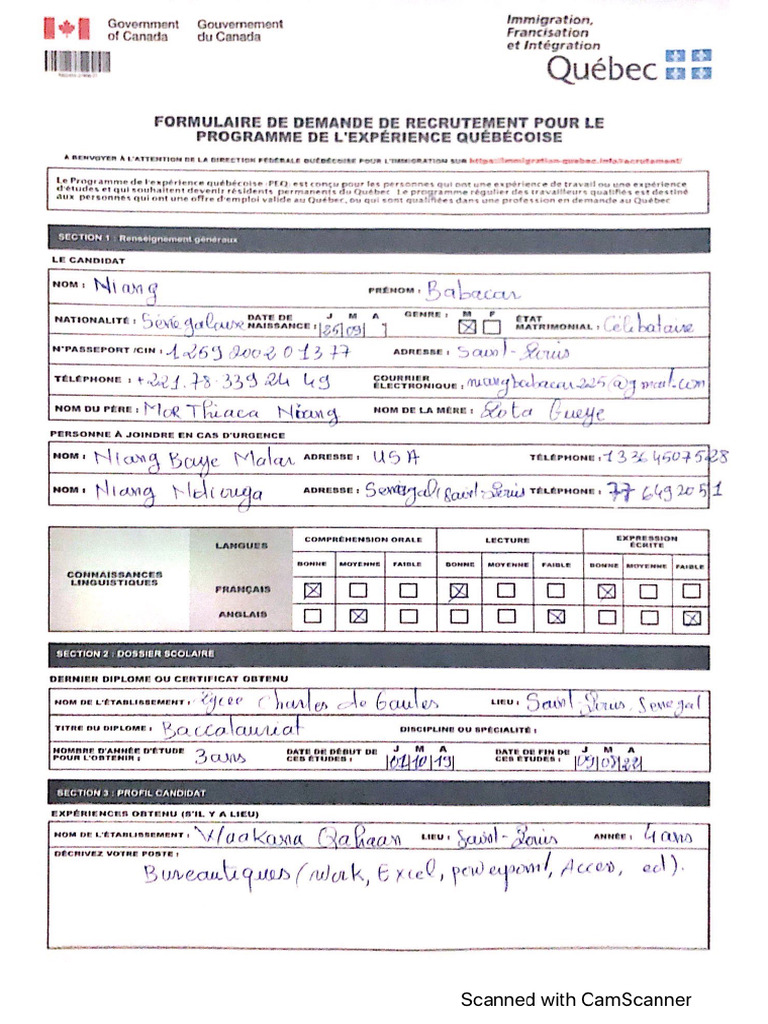 Government of Canada Gouvernement du Canada
Immigration, Francisation et Intégration
Québec
FORMULAIRE DE DEMANDE DE RECRUTEMENT POUR LE
PROGRAMME DE L'EXPÉRIENCE QUÉBÉCOISE
À RENVOYER À L'ATTENTION DE LA DIRECTION FÉDÉRALE QUÉBÉCOISE POUR L'IMMIGRATION SUR https://immigration-quebec.info/recrutement/
Le Programme de l'expérience québécoise (PEQ) est conçu pour les personnes qui ont une expérience de travail ou une expérience
d'études et qui souhaitent devenir résidents permanents du Québec. Le programme régulier des travailleurs qualifiés est destiné
aux personnes qui ont une offre d'emploi valide au Québec, ou qui sont qualifiées dans une profession en demande au Québec
SECTION 1 : Renseignement généraux
LE CANDIDAT
NOM : Niang PRÉNOM : Babacar
NATIONALITÉ : Sénégalaise DATE DE NAISSANCE : J M A 25|09| GENRE : M F ÉTAT MATRIMONIAL : Célibataire
N°PASSEPORT /CIN : 1 259 2002 01377 ADRESSE : Saint-Louis
TÉLÉPHONE : +221.78.339 24 49 COURRIER ÉLECTRONIQUE : niangbabacar225@gmail.com
NOM DU PÈRE : Mor Thiaca Niang NOM DE LA MÈRE : Gueye
PERSONNE À JOINDRE EN CAS D'URGENCE
NOM : Niang Baye Malar ADRESSE : USA TÉLÉPHONE : 13364507528
NOM : Niang Ndiouga ADRESSE : Senegal (Saint-Louis TÉLÉPHONE : 77 649 20 51
LANGUES COMPRÉHENSION ORALE LECTURE EXPRESSION ÉCRITE
BONNE MOYENNE FAIBLE BONNE MOYENNE FAIBLE BONNE MOYENNE FAIBLE
CONNAISSANCES LINGUISTIQUES
FRANÇAIS
ANGLAIS
SECTION 2 : DOSSIER SCOLAIRE
DERNIER DIPLOME OU CERTIFICAT OBTENU
NOM DE L'ÉTABLISSEMENT : Lycee Charles de Gaules LIEU : Saint-Louis, Senegal
TITRE DU DIPLOME : Baccalauriat DISCIPLINE OU SPÉCIALITÉ :
NOMBRE D'ANNÉE D'ÉTUDE POUR L'OBTENIR : 3 ans DATE DE DÉBUT DE CES ÉTUDES : J M A |01|10|19| DATE DE FIN DE CES ÉTUDES : J M A |09|08|22|
SECTION 3 : PROFIL CANDIDAT
EXPÉRIENCES OBTENU (S'IL Y A LIEU)
NOM DE L'ÉTABLISSEMENT : LIEU : Saint-Louis ANNÉE : 4 ans
DÉCRIVEZ VOTRE POSTE :
Bureautiques (Work, Excel, powerpoint, Acces, ect).
Scanned with CamScanner